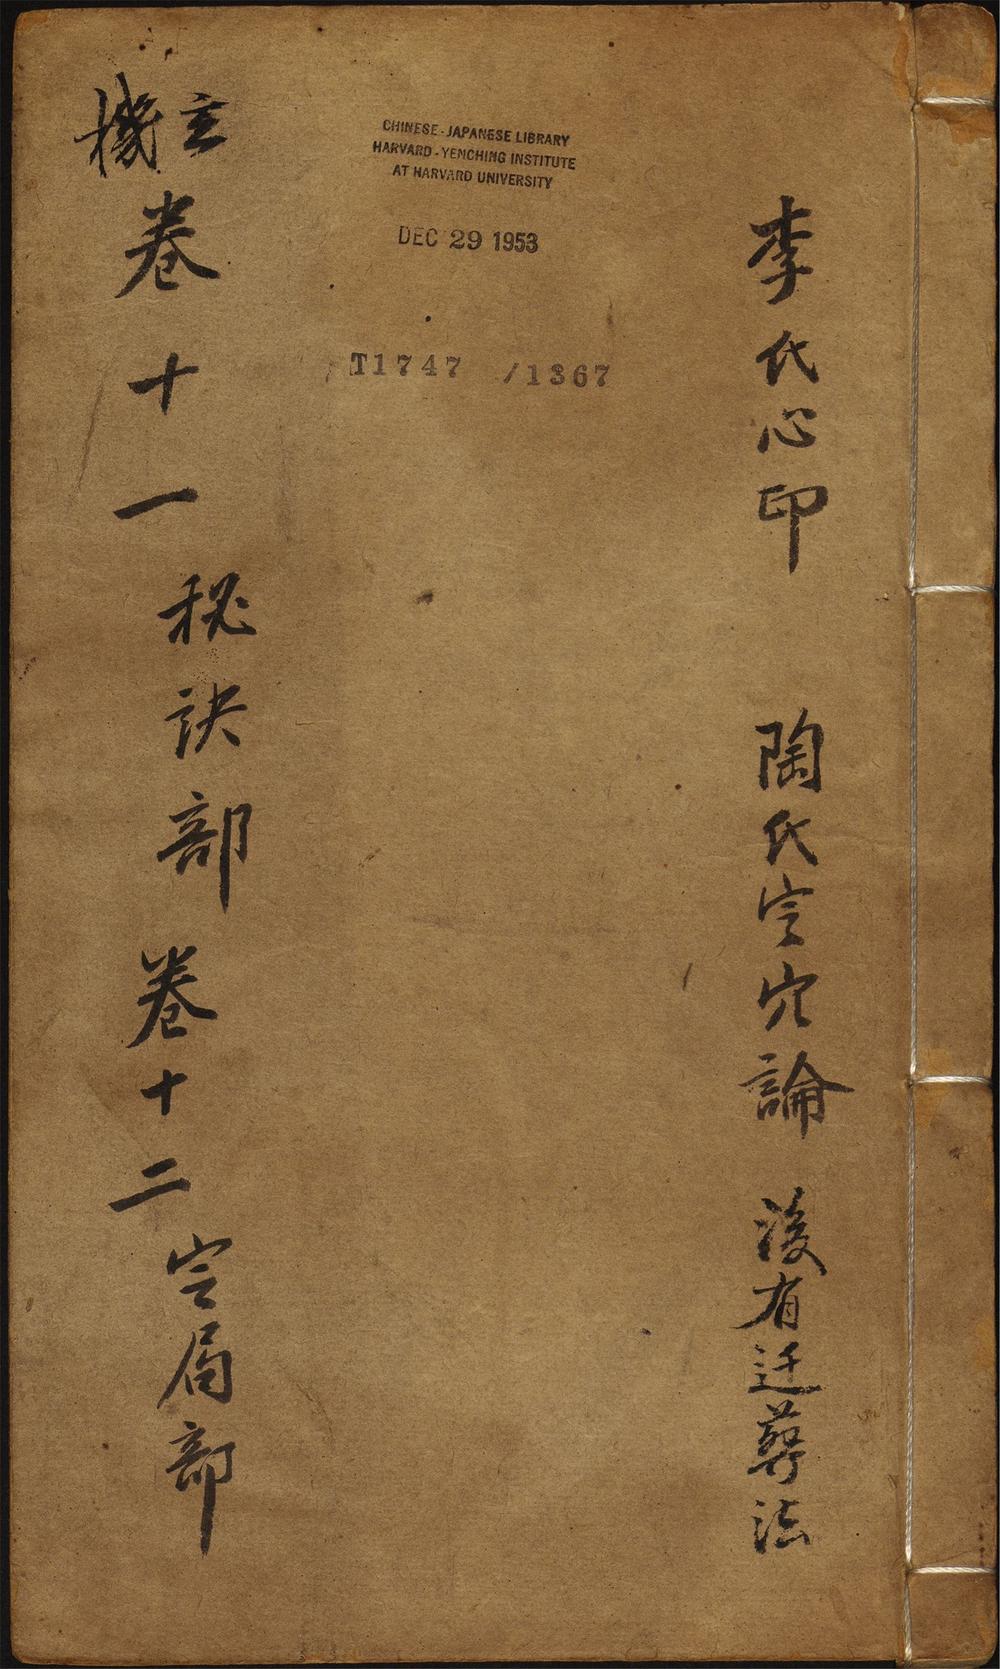 李氏心印 陶氏定穴論 後有迁葬法
CHINESE-JAPANESE LIBRARY
HARVARD-YENCHING INSTITUTE
AT HARVARD UNIVERSITY
DEC 29 1953
T1747 /1367
機
卷十一 秘訣部 卷十二 定局部